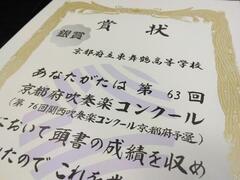 賞状
銀賞
京都府立東舞鶴高等学校
あなたがたは第63回
京都府吹奏楽コンクール
(第76回関西吹奏楽コンクール京都府予選)
において頭書の成績を収め
たのでこれを